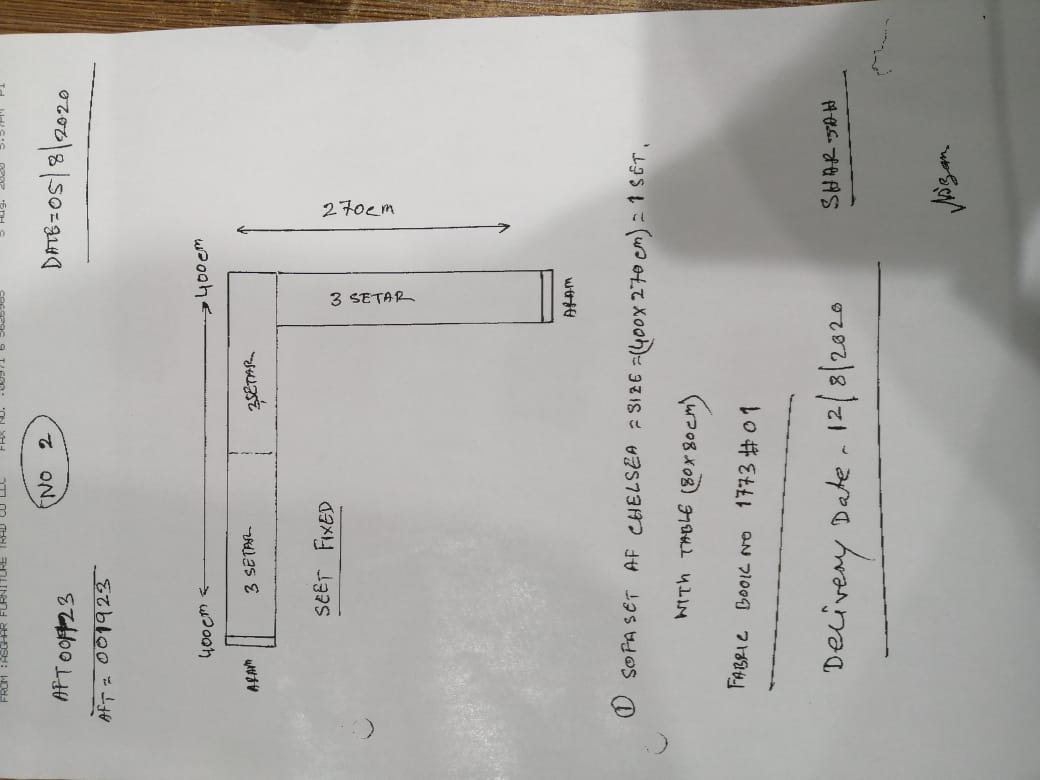 FROM :ASGHAR FURNITURE TRAD CO LLC FAX NO. :00971 6 5626965 5 Aug. 2020 5:57AM P1
NO 2
DATE=05/8/2020
AFT=001923
400cm
400cm
3 SETAR
3SETAR
ARAM
270cm
3 SETAR
ARAM
SEET FIXED
① SOFA SET AF CHELSEA = SIZE =(400x270cm)=1 SET.
WITH TABLE (80x80cm)
FABRIC BOOK NO 1773#01
Delivery Date - 12/8/2020
SHARJAH